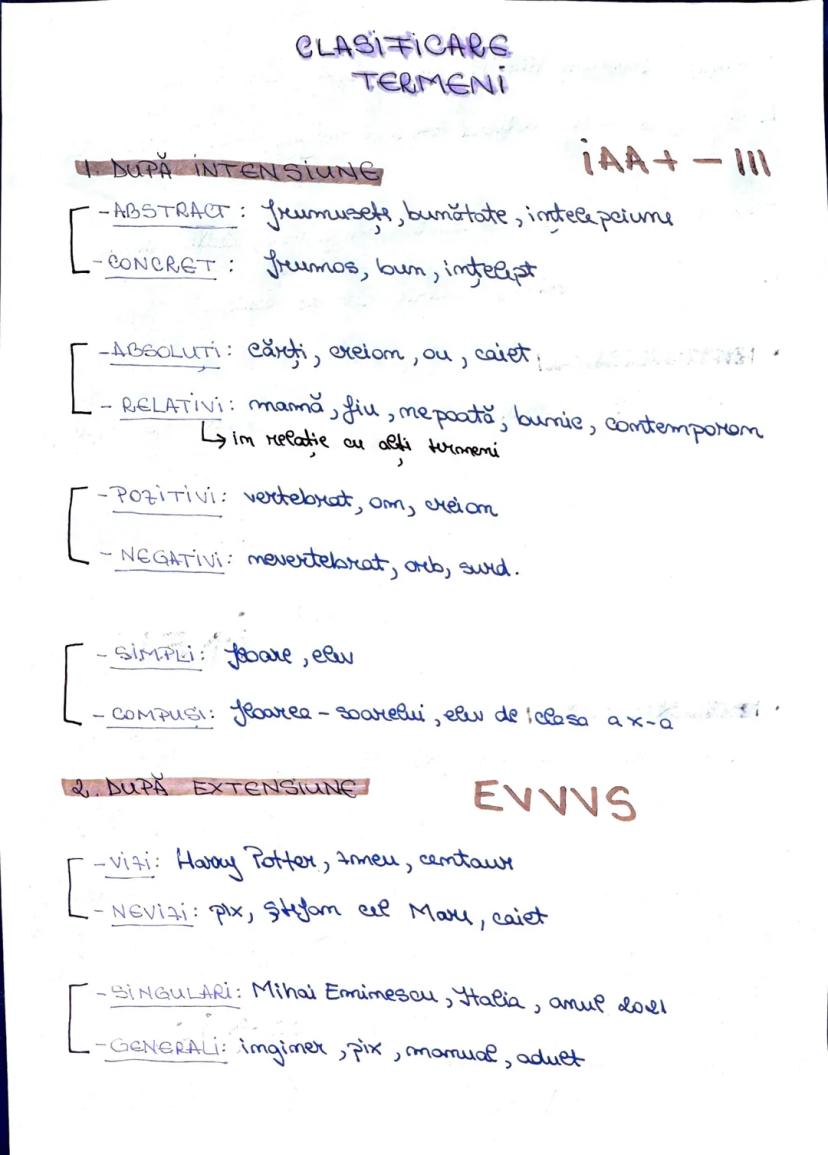 CLASIFICARE
TERMENI
1. DUPĂ INTENSIUNE
iAA + - III
- ABSTRACT: frumusețe, bunătate, înțelepciune
- CONCRET: frumos, bun, înțelept
- ABSOLUȚI: cărți, creion, ou, caiet
- RELATIVI: mamă, fiu, nepoată, bunic, contemporan
↳ în relație cu alți termeni
- POZITIVI: vertebrat, om, creion
- NEGATIVI: nevertebrat, orb, surd.
- SIMPLI: floare, elev
- COMPUSI: floarea-soarelui, elev de clasa a x-a
2. DUPĂ EXTENSIUNE
EVVVS
- VIZI: Harry Potter, zmeu, centaur
- NEVIZI: pix, Ștefan cel Mare, caiet
- SINGULARI: Mihai Eminescu, Italia, anul 2021
- GENERALI: inginer, pix, manual, adult